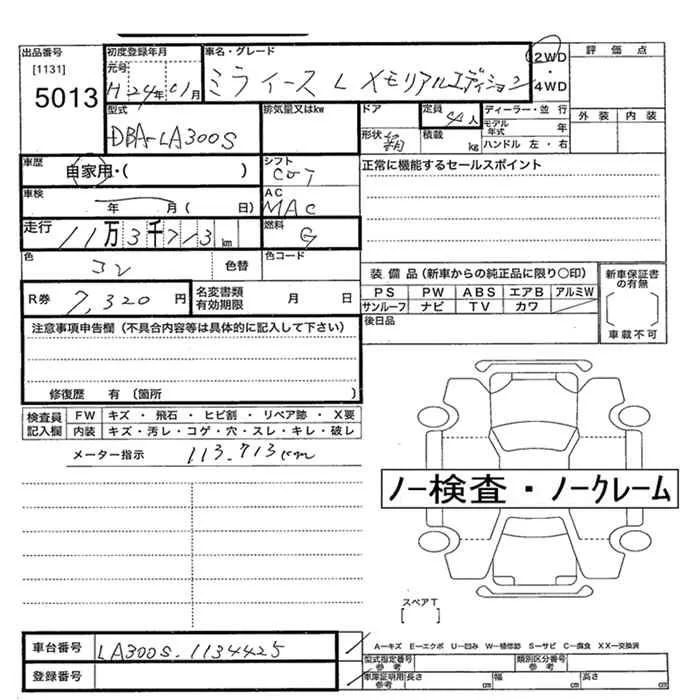 出品番号
[1131]
5013
初度登録年月
元号
H 24年 01月
車名・グレード
ミライース L メモリアルエディション
2WD
・
4WD
評価点
外装 内装
型式
DBA-LA300S
排気量又はkw
ドア
形状 箱
定員 4人
積載 kg
ディーラー・並行
モデル年式 年
ハンドル 左・右
車歴
自家用・( )
シフト
COT
正常に機能するセールスポイント
車検
年 月( 日)
AC
MAC
走行
11万3千713km
燃料
G
色
コン
色替
色コード
装備品(新車からの純正品に限り〇印)
PS PW ABS エアB アルミW
サンルーフ ナビ TV カワ
新車保証書の有無
車載不可
R券 7,320円
名変書類有効期限 月 日
後日品
注意事項申告欄(不具合内容等は具体的に記入して下さい)
修復歴 有(箇所 )
検査員記入欄
FW キズ・飛石・ヒビ割・リペア跡・X要
内装 キズ・汚レ・コゲ・穴・スレ・キレ・破レ
メーター指示 113.713km
ノー検査・ノークレーム
スペアT
[ ]
車台番号 LA300S-1134425
A-キズ E-エクボ U-凹み W-補修跡 S-サビ C-腐食 XX-交換済
登録番号
型式指定番号参考
類別区分番号参考
車庫証明用参考 長さ cm 幅 cm 高さ cm